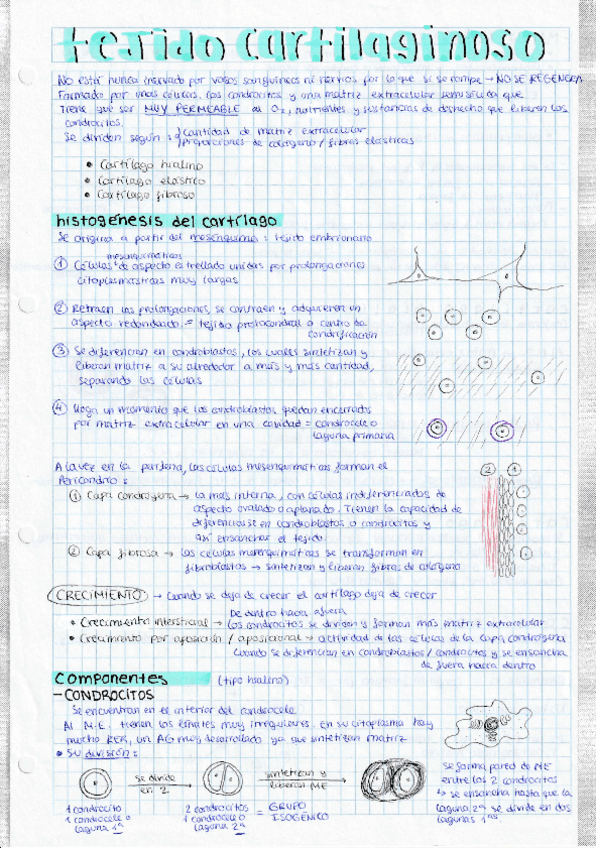 tejido cartilaginoso
No están nunca inervado por vasos sanguíneos ni nervios por lo que si se rompe → NO SE REGENERA
Formado por unas células, los condrocitos y una matriz extracelular semisólida que
tiene que ser MUY PERMEABLE al O₂, nutrientes y sustancias de deshecho que liberen los
condrocitos.
Se dividen según: { cantidad de matriz extracelular
proporciones de colágeno / fibras elásticas
• Cartílago hialino
• Cartílago elástico
• Cartílago fibroso
histogénesis del cartílago
Se origina a partir del mesénquima = tejido embrionario
mesenquimáticas
① Células de aspecto estrellado unidas por prolongaciones
citoplasmáticas muy largas
② Retraen las prolongaciones, se contraen y adquieren un
aspecto redondeado. = tejido protocondral o centro de
condrificación
③ Se diferencian en condroblastos, los cuales sintetizan y
liberan matriz a su alrededor a más y más cantidad,
separando las células
④ Llega un momento que los condroblastos quedan encerrados
por matriz extracelular en una cavidad = condrocele o
laguna primaria
A la vez en la periferia, las células mesenquimáticas forman el
Pericondrio:
② ①
① Capa condrógena → la más interna, con células indiferenciadas de
aspecto ovalado o aplanado. Tienen la capacidad de
diferenciarse en condroblastos o condrocitos y
así ensanchar el tejido.
② Capa fibrosa → las células mesenquimáticas se transforman en
fibroblastos → sintetizan y liberan fibras de colágeno
CRECIMIENTO → Cuando se deja de crecer el cartílago deja de crecer
De dentro hacia afuera
• Crecimiento intersticial → los condrocitos se dividen y forman más matriz extracelular
• Crecimiento por aposición / aposicional → actividad de las células de la capa condrógena
cuando se diferencian en condroblastos / condrocitos y se ensancha
de fuera hacia dentro
Componentes (tipo hialino)
- CONDROCITOS
Se encuentran en el interior del condrocele
Al M.E. tienen los límites muy irregulares. en su citoplasma hay
mucho RER, un AG muy desarrollado ya que sintetizan matriz
• Su división:
se divide
en 2
sintetizan y
liberan ME
1 condrocito
1 condrocele o
laguna 1ª
2 condrocitos
1 condrocele o
laguna 2ª
= GRUPO
ISOGÉNICO
Se forma pared de ME
entre los 2 condrocitos
↳ se ensancha hasta que la
laguna 2ª se divide en dos
lagunas 1ªs